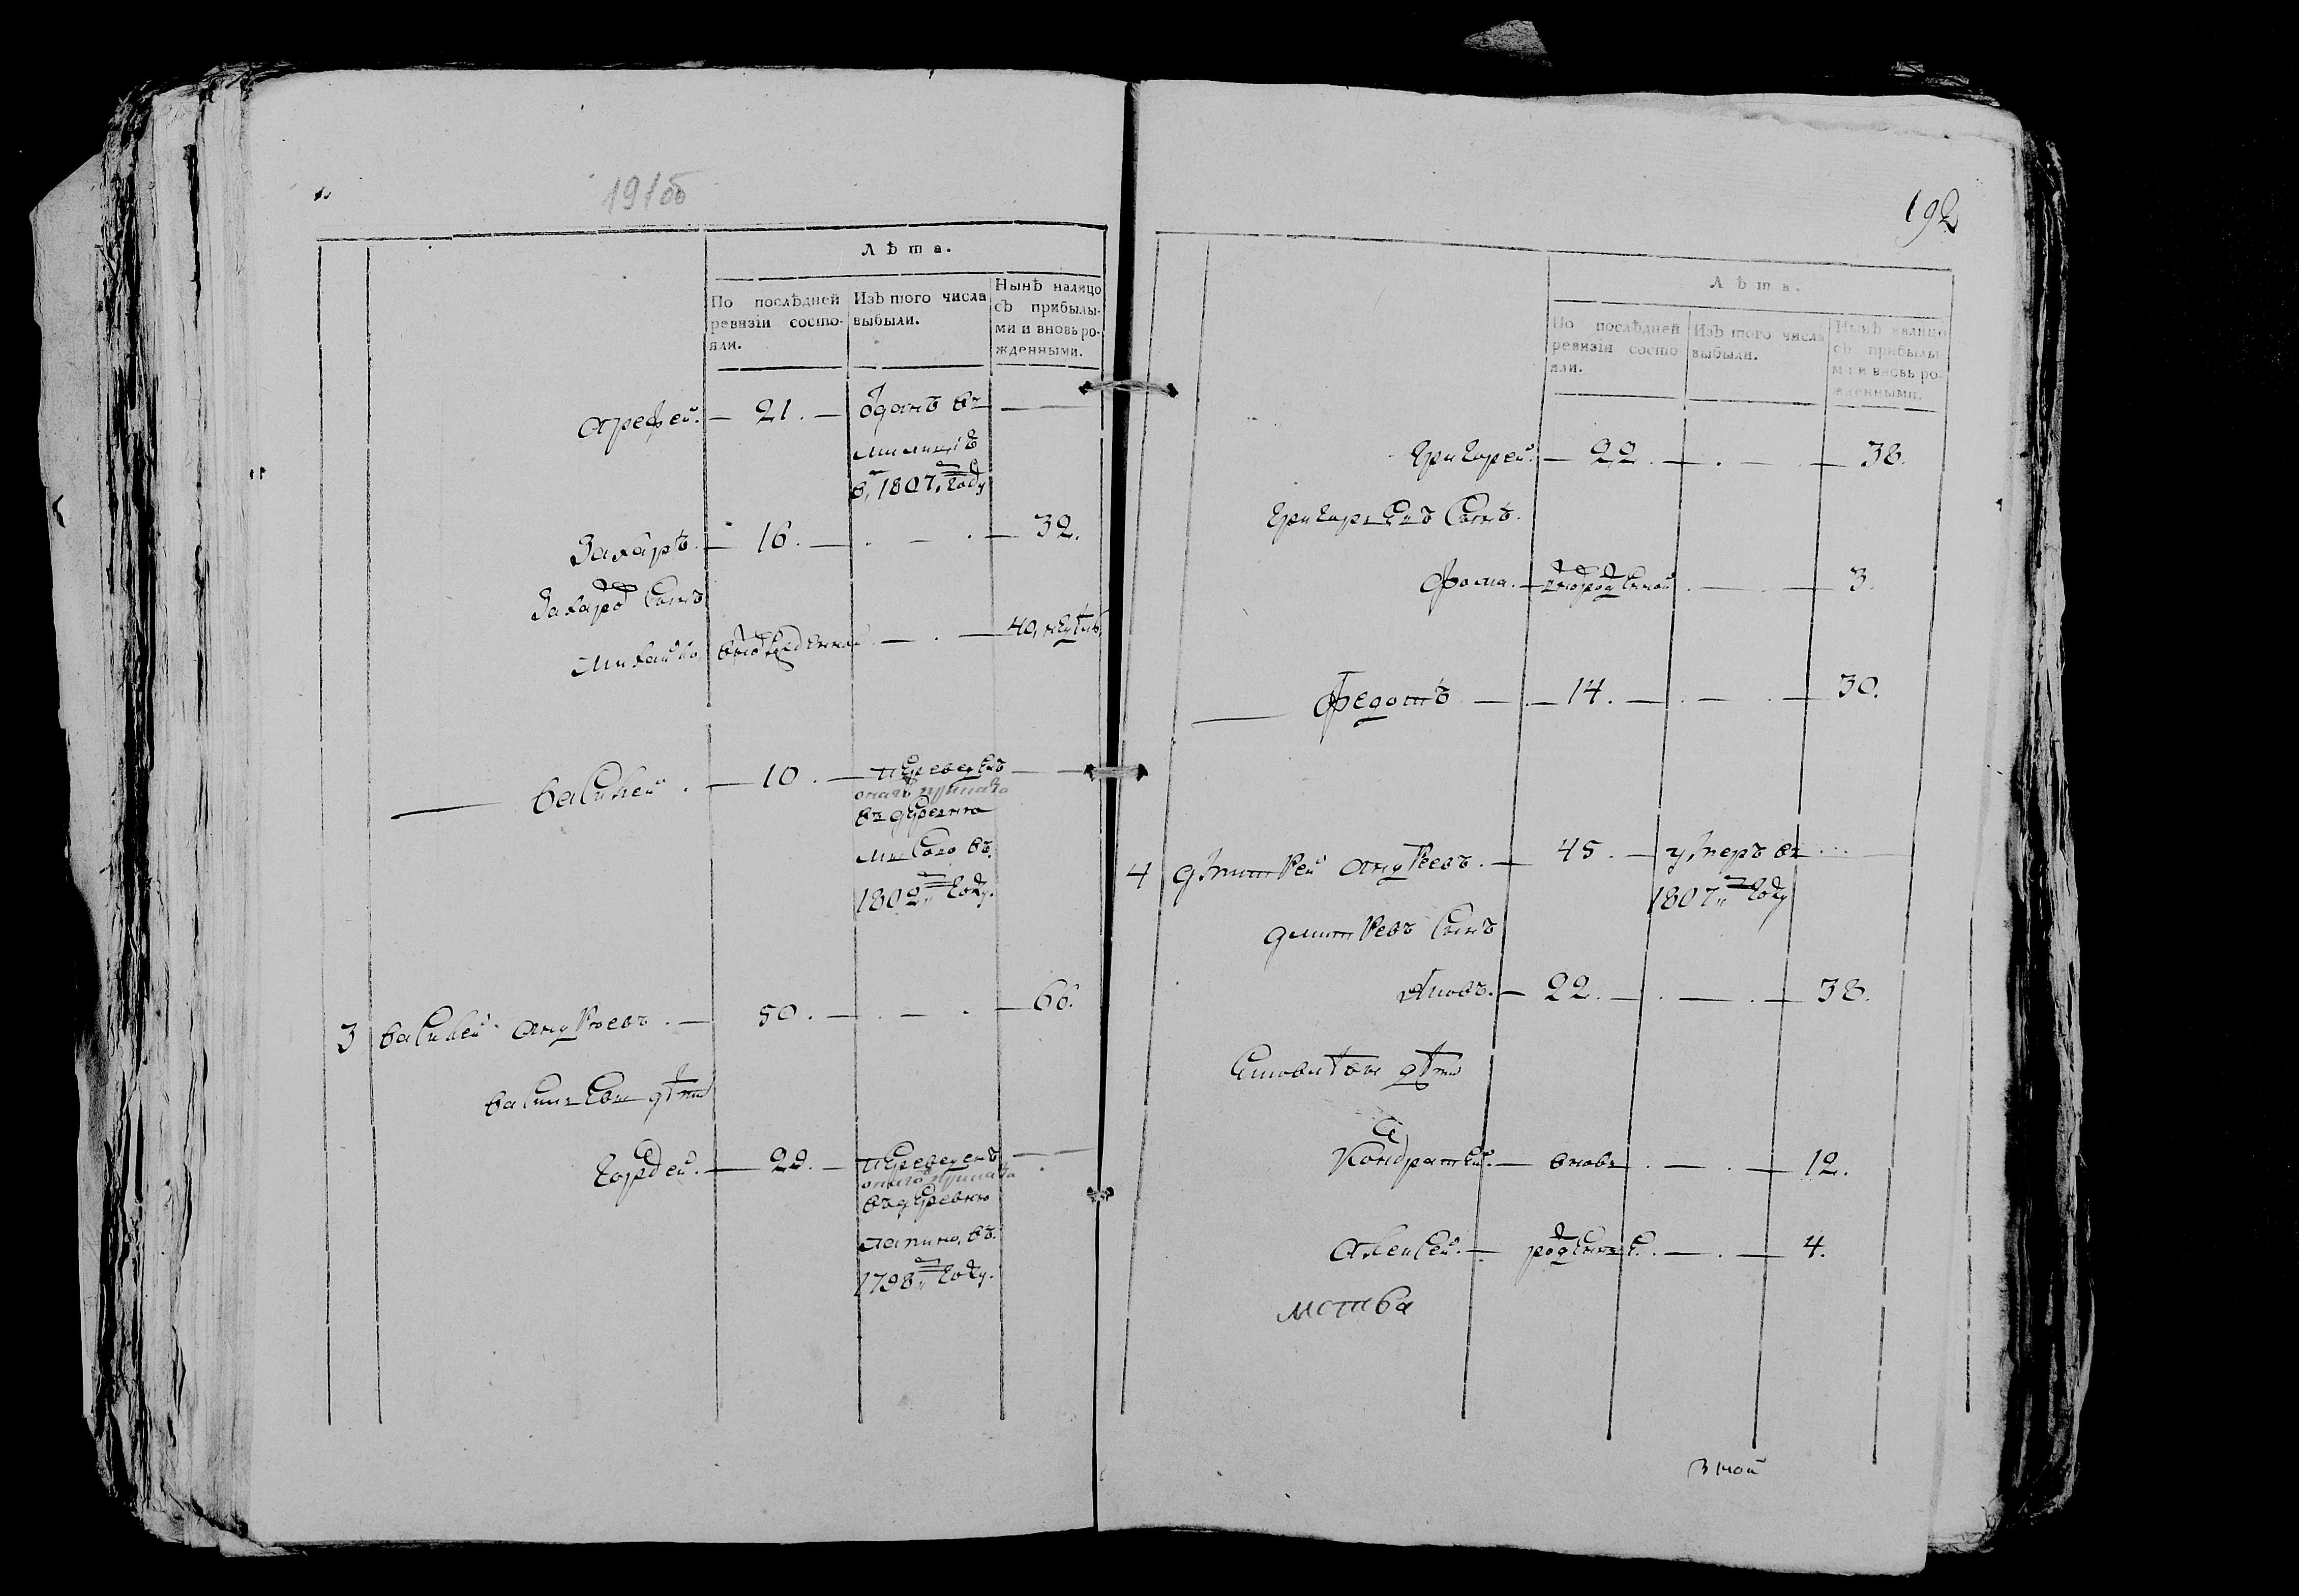 191об
Лѣта.
По послѣдней ревизіи состояли.
Изъ того числа выбыли.
Нынѣ налицо съ прибылыми и вновь рожденными.
арефей. — 21. — оданъ въ
милицiю
в 1807м году
Захаръ. — 16. — . — . — 32.
Захаро сынъ
Михайло вновьрожденной — . — 40, недѣль
— василей . — 10 . — переведенъ
онаго приказа
въ деревню
въ
1802м году.
3 василей андреевъ . — 50 . — . — . — 66.
васильевы дѣти
гордей. — 22. — переведенъ
онаго приказа
въ деревню
лапино, въ
1798м году.
192
Лѣта.
По послѣдней ревизіи состояли.
Изъ того числа выбыли.
Нынѣ налицо съ прибылыми и вновь рожденными.
григорей. — 22 . — . — 38.
григорьевъ сынъ.
фома. — . — . — 3.
— федотъ — . — 14 . — . — . — 30.
4 дмитрей андреевъ . — 45 . — умеръ въ ...
1807м году
дмитревъ сынъ
— 22 . — . — . — 38.
дѣти
Кондратей. — вновь . — . — 12.
алексей. — рожденные. — . — 4.